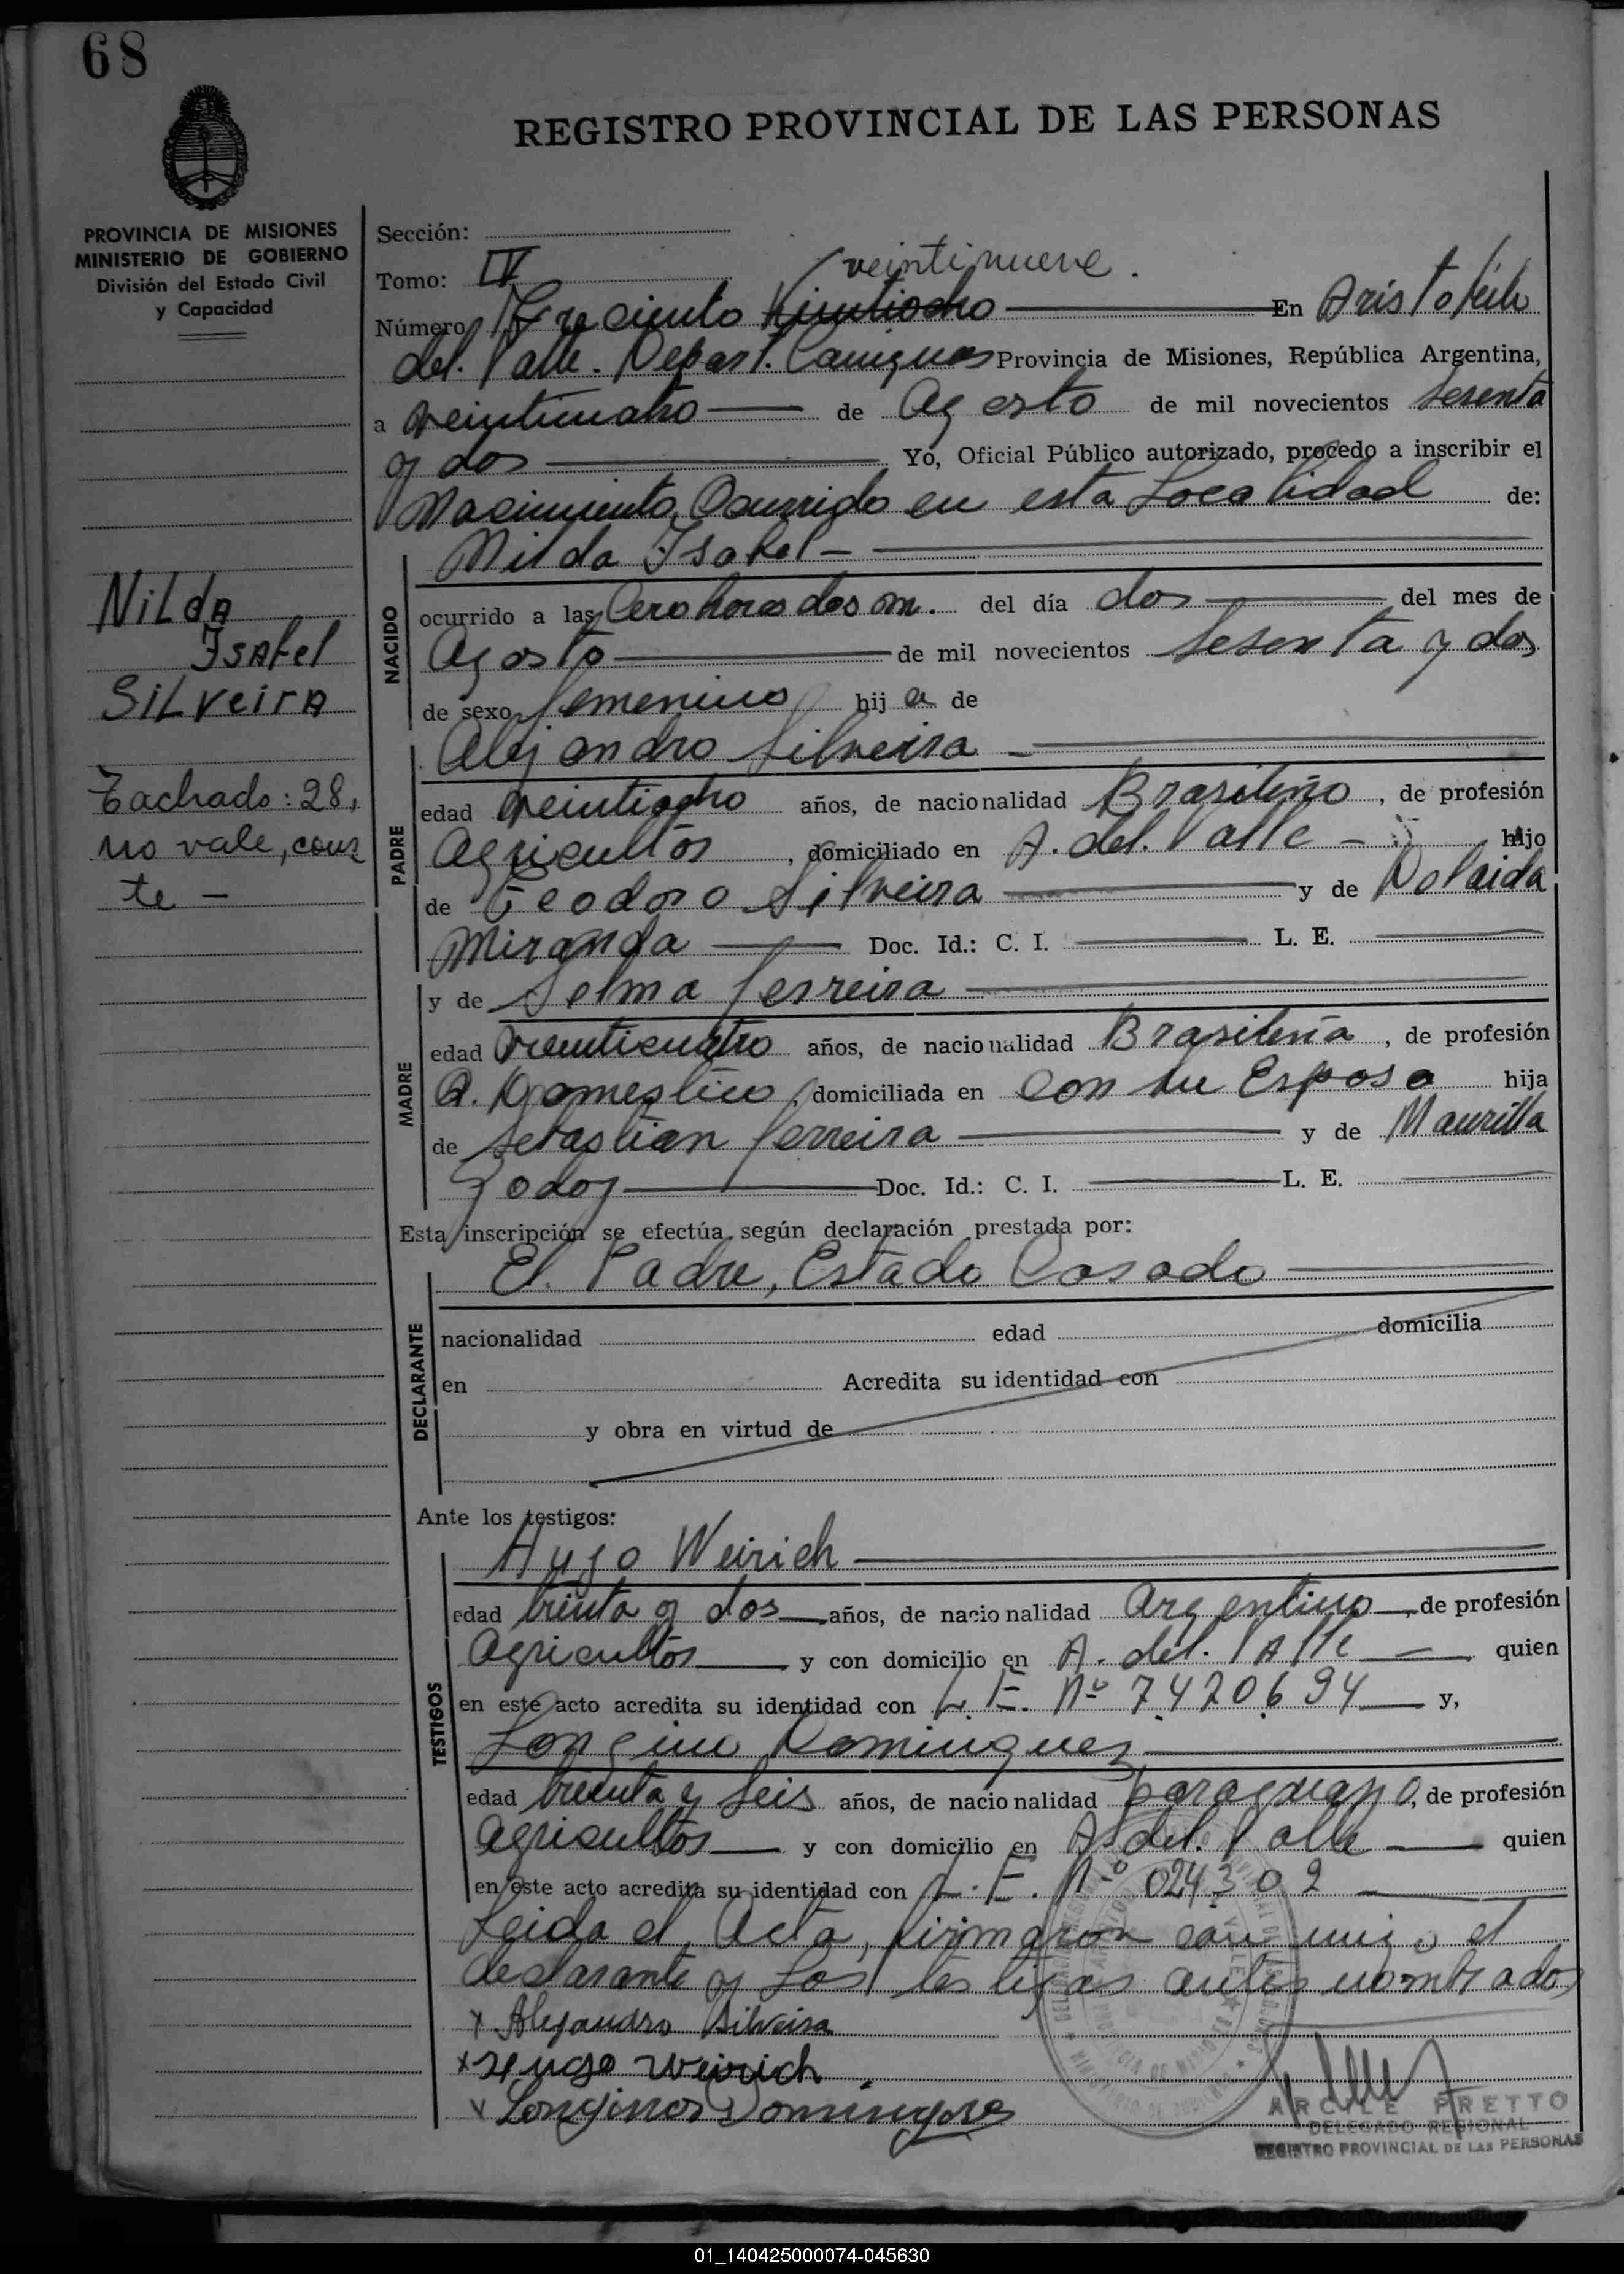 68
REGISTRO PROVINCIAL DE LAS PERSONAS
PROVINCIA DE MISIONES
MINISTERIO DE GOBIERNO
División del Estado Civil
y Capacidad
Sección:
Tomo: IV
veintinueve.
Número Trecientos Veintiocho En Aristobulo
del. Valle. Depart. Cainguas Provincia de Misiones, República Argentina,
a veinticuatro de Agosto de mil novecientos sesenta
y dos Yo, Oficial Público autorizado, procedo a inscribir el
Nacimiento, Ocurrido en esta Localidad de:
Nilda Isabel -
NACIDO
ocurrido a las Cero horas dos m. del día dos del mes de
Agosto de mil novecientos sesenta y dos
de sexo femenino hija de
Nilda
Isabel
Silveira
Tachado: 28,
no vale, cons
te -
PADRE
Alejandro Silveira
edad veintiocho años, de nacionalidad Brasileño, de profesión
Agricultor, domiciliado en A. del. Valle - hijo
de Teodoro Silveira y de Dolaida
Miranda Doc. Id.: C. I. L. E.
MADRE
y de Selma Ferreira
edad veinticuatro años, de nacionalidad Brasileña, de profesión
Q. Domestico, domiciliada en con su Esposo hija
de Sebastian Ferreira y de Maurilla
Godoy Doc. Id.: C. I. L. E.
Esta inscripción se efectúa según declaración prestada por:
DECLARANTE
El. Padre, Estado Casado
nacionalidad edad domicilia
en Acredita su identidad con
y obra en virtud de
Ante los testigos:
TESTIGOS
Hugo Weirich
edad treinta y dos años, de nacionalidad Argentino, de profesión
Agricultor y con domicilio en A. del. Valle quien
en este acto acredita su identidad con L. E. Nº 7420694 y,
Longino Dominguez
edad treinta y seis años, de nacionalidad paraguayo, de profesión
agricultor y con domicilio en A. del. Valle quien
en este acto acredita su identidad con L. E. Nº 024309
Leida el Acta, firmaron con migo el
declarante y Los testigos antes nombrados
x Alejandro Silveira
x Hugo Weirich
x Longinos Domingues
ARCILE PRETTO
DELEGADO REGIONAL
REGISTRO PROVINCIAL DE LAS PERSONAS
01_140425000074-045630